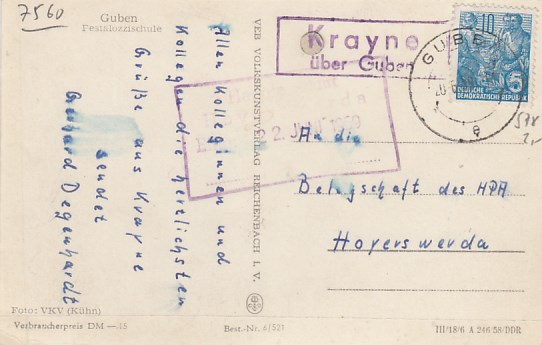 7560
Guben
Pestalozzischule
Allen Kolleginnen und
Kollegen die herzlichsten
Grüße aus Krayne
sendet
Gerhard Degenhardt
Foto: VKV (Kühn)
Verbraucherpreis DM —15
VEB VOLKSKUNSTVERLAG REICHENBACH I. V.
Best.-Nr. 6/521
Krayne
über Guben
GUBEN
10
5
DEUTSCHE
DEMOKRATISCHE REPUBLIK
578
2,-
2. JUNI 1959
An die
Belegschaft des HPA
Hoyerswerda
III/18/6 A 246/58/DDR